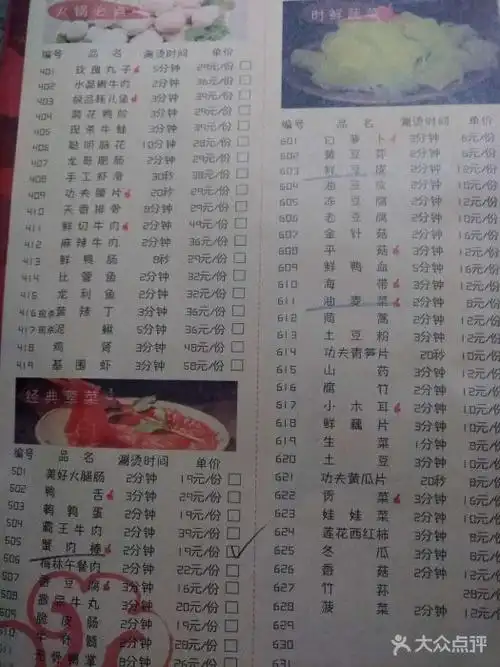 火锅必点
编号 品名 涮烫时间 单价
401 玫瑰丸子 5分钟 29元/份
402 水晶嫩牛肉 2分钟 36元/份
403 极品耗儿鱼 3分钟 39元/份
404 黄花鸭肠 3分钟 29元/份
405 现杀牛蛙 3分钟 39元/份
406 聪明脑花 10分钟 28元/份
407 龙哥肥肠 2分钟 29元/份
408 手工虾滑 30秒 38元/份
409 功夫腰片 20秒 29元/份
410 天香排骨 8分钟 29元/份
411 鲜切牛肉 2分钟 49元/份
412 麻辣牛肉 2分钟 36元/份
413 鲜鸭肠 8秒 29元/份
414 比管鱼 2分钟 36元/份
415 龙利鱼 2分钟 32元/份
416 现杀 黄辣丁 3分钟 36元/份
417 现杀 泥鳅 3分钟 32元/份
418 鸡肾 3分钟 36元/份
419 基围虾 3分钟 58元/份
经典荤菜
编号 品名 涮烫时间 单价
501 美好火腿肠 2分钟 19元/份
502 鸭舌 3分钟
503 鹌鹑蛋 2分钟 19元/份
504 霸王牛肉 2分钟
505 蟹肉棒 2分钟 19元/份
506 梅林午餐肉 2分钟 22元/份
507 豆腐 2分钟 16元/份
508 牛丸 3分钟 22元/份
509 脆皮肠 2分钟 19元/份
510 牛骨髓 2分钟 28元/份
时鲜蔬菜
编号 品名 涮烫时间 单价
601 白萝卜 3分钟 6元/份
602 黄豆芽 2分钟 8元/份
603 鲜豆皮 3分钟 12元/份
604 油豆皮 2分钟 12元/份
605 冻豆腐 2分钟 12元/份
606 老豆腐 2分钟 10元/份
607 金针菇 2分钟 12元/份
608 平菇 3分钟 12元/份
609 鲜鸭血 5分钟 16元/份
610 海带 3分钟 12元/份
611 油麦菜 2分钟 8元/份
612 茼蒿 2分钟
613 土豆粉 3分钟
614 功夫青笋片 20秒 10元/份
615 山药 3分钟
616 腐竹 2分钟
617 小木耳 2分钟
618 鲜藕片 2分钟 10元/份
619 生菜 1分钟 8元/份
620 土豆 2分钟 10元/份
621 功夫黄瓜片 20秒 8元/份
622 贡菜 3分钟 16元/份
623 娃娃菜 2分钟 10元/份
624 莲花西红柿 3分钟 8元/份
625 冬瓜 3分钟 8元/份
626 香菇 3分钟 12元/份
627 竹荪 28元/份
628 菠菜 2分钟 12元/份
629
630
大众点评